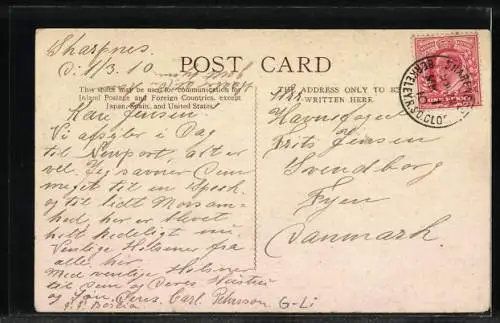 Sharpnes.
d: 1/3. 10.
POST CARD
This space may be used for communication for
Inland Postage and Foreign Countries, except
Japan, Spain, and United States.
THE ADDRESS ONLY TO BE
WRITTEN HERE.
Kære Jensen.
Vi afsejler i Dag
til Newport, alt er
vel. Jeg savner Dem
meget til en
og til lidt Morsom-
hed, her er blevet
helt kedeligt nu.
Venlige Hilsener fra
alle her
Med venlige Hilsener
til Dem og Deres Hustru
og Deres. Carl
G-Li
Till.
Havnefoged
Frits Jensen
Svendborg
Fyen
Danmark.
BERKELEY R.S.O. GLOS
ONE PENNY